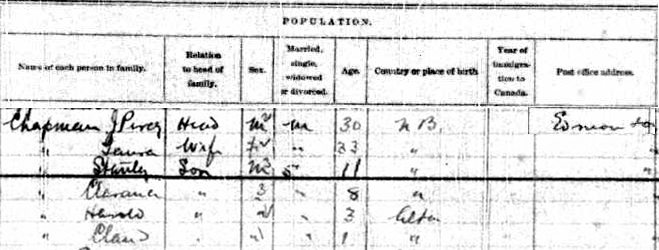 POPULATION.
Name of each person in family. Relation to head of family. Sex. Married, single, widowed or divorced. Age. Country or place of birth Year of immigration to Canada. Post office address.
Chapman J Percy Head M m 30 N B. Edmonton
" Laura Wife " 33 " "
" Stanley Son M s 11 " "
" Clarence " " 8 "
" Harold " " 3 Alta
" Claud " " 1 "